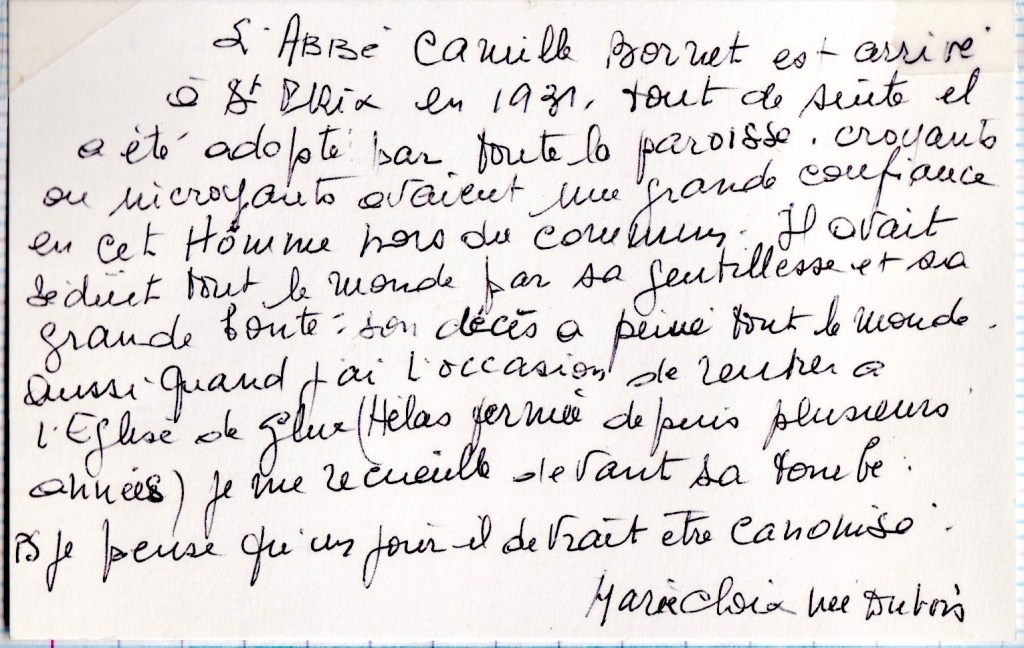 L'ABBé Camille Bornet est arrivé
à St PRix en 1931. tout de suite il
a été adopté par toute la paroisse. croyants
ou incroyants avaient une grande confiance
en cet Homme hors du commun. Il avait
séduit tout le monde par sa gentillesse et sa
grande bonté. son décès a peiné tout le monde.
Aussi quand j'ai l'occasion de rentrer a
l'Eglise de Glux (Hélas fermée depuis plusieurs
années) je me recueille devant sa tombe.
PS je pense qu'un jour il devrait etre canonisé.
Marie née Dubois